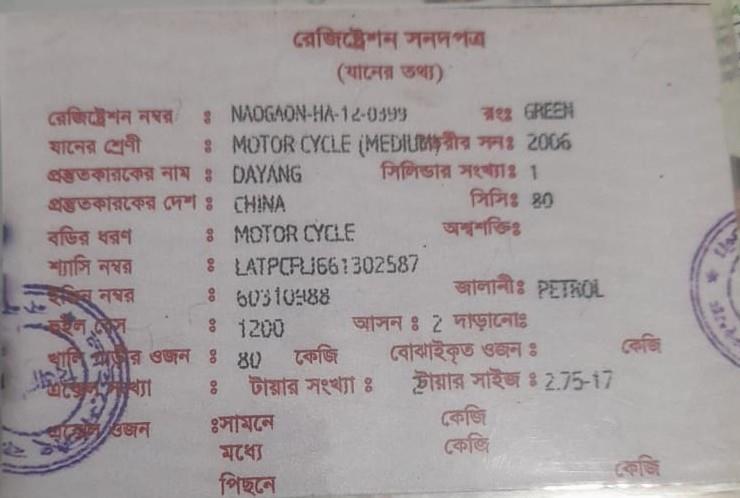 রেজিষ্ট্রেশন সনদপত্র
(যানের তথ্য)
রেজিষ্ট্রেশন নম্বর : NAOGAON-HA-12-0399 রংঃ GREEN
যানের শ্রেণী : MOTOR CYCLE (MEDIUM) সনঃ 2006
প্রস্তুতকারকের নাম : DAYANG সিলিন্ডার সংখ্যাঃ 1
প্রস্তুতকারকের দেশ : CHINA সিসিঃ 80
বডির ধরণ : MOTOR CYCLE অশ্বশক্তিঃ
শ্যাসি নম্বর : 661302587
নম্বর : জালানীঃ PETROL
: 1200 আসন : 2 দাড়ানোঃ
খালি ওজন : 80 কেজি বোঝাইকৃত ওজন : কেজি
: টায়ার সংখ্যা : 2 টায়ার সাইজ : 2.75-17
ওজন :সামনে কেজি
মধ্যে কেজি
পিছনে কেজি